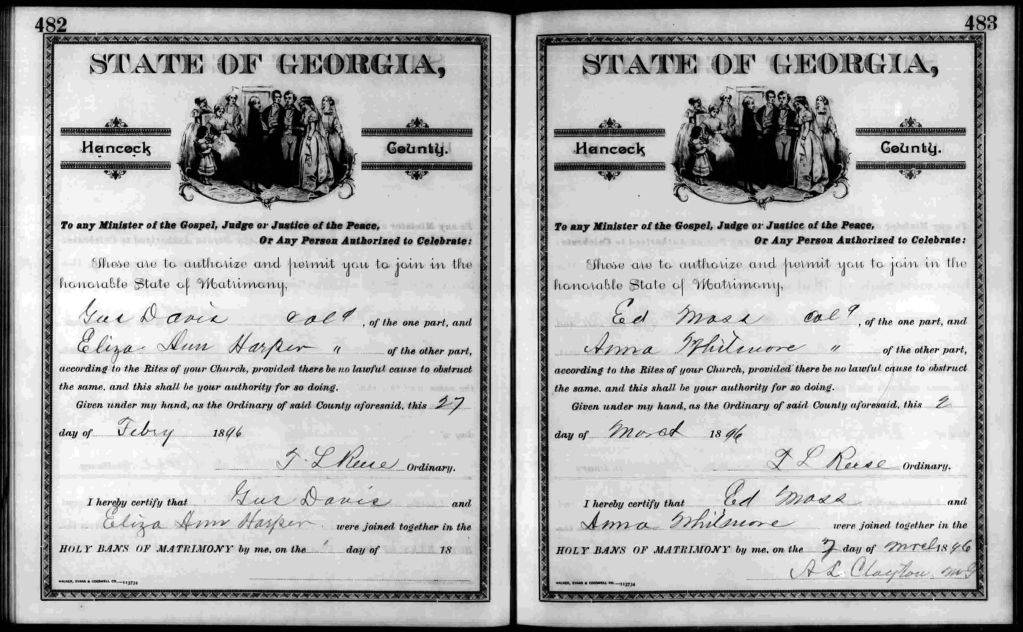 482
STATE OF GEORGIA,
Hancock County.
To any Minister of the Gospel, Judge or Justice of the Peace,
Or Any Person Authorized to Celebrate:
These are to authorize and permit you to join in the
honorable State of Matrimony,
Gus Davis cold, of the one part, and
Eliza Ann Harper " of the other part,
according to the Rites of your Church, provided there be no lawful cause to obstruct
the same, and this shall be your authority for so doing.
Given under my hand, as the Ordinary of said County aforesaid, this 27
day of Febry 1896
T. L Reese Ordinary.
I hereby certify that Gus Davis and
Eliza Ann Harper were joined together in the
HOLY BANS OF MATRIMONY by me, on the day of 18
WALKER, EVANS & COGSWELL CO.—113734
483
STATE OF GEORGIA,
Hancock County.
To any Minister of the Gospel, Judge or Justice of the Peace,
Or Any Person Authorized to Celebrate:
These are to authorize and permit you to join in the
honorable State of Matrimony,
Ed Moss cold, of the one part, and
Anna Whitmore " of the other part,
according to the Rites of your Church, provided there be no lawful cause to obstruct
the same, and this shall be your authority for so doing.
Given under my hand, as the Ordinary of said County aforesaid, this 2
day of March 1896
T L Reese Ordinary.
I hereby certify that Ed Moss and
Anna Whitmore were joined together in the
HOLY BANS OF MATRIMONY by me, on the 7 day of Mrch 1896
A L Clayton M G
WALKER, EVANS & COGSWELL CO.—113734